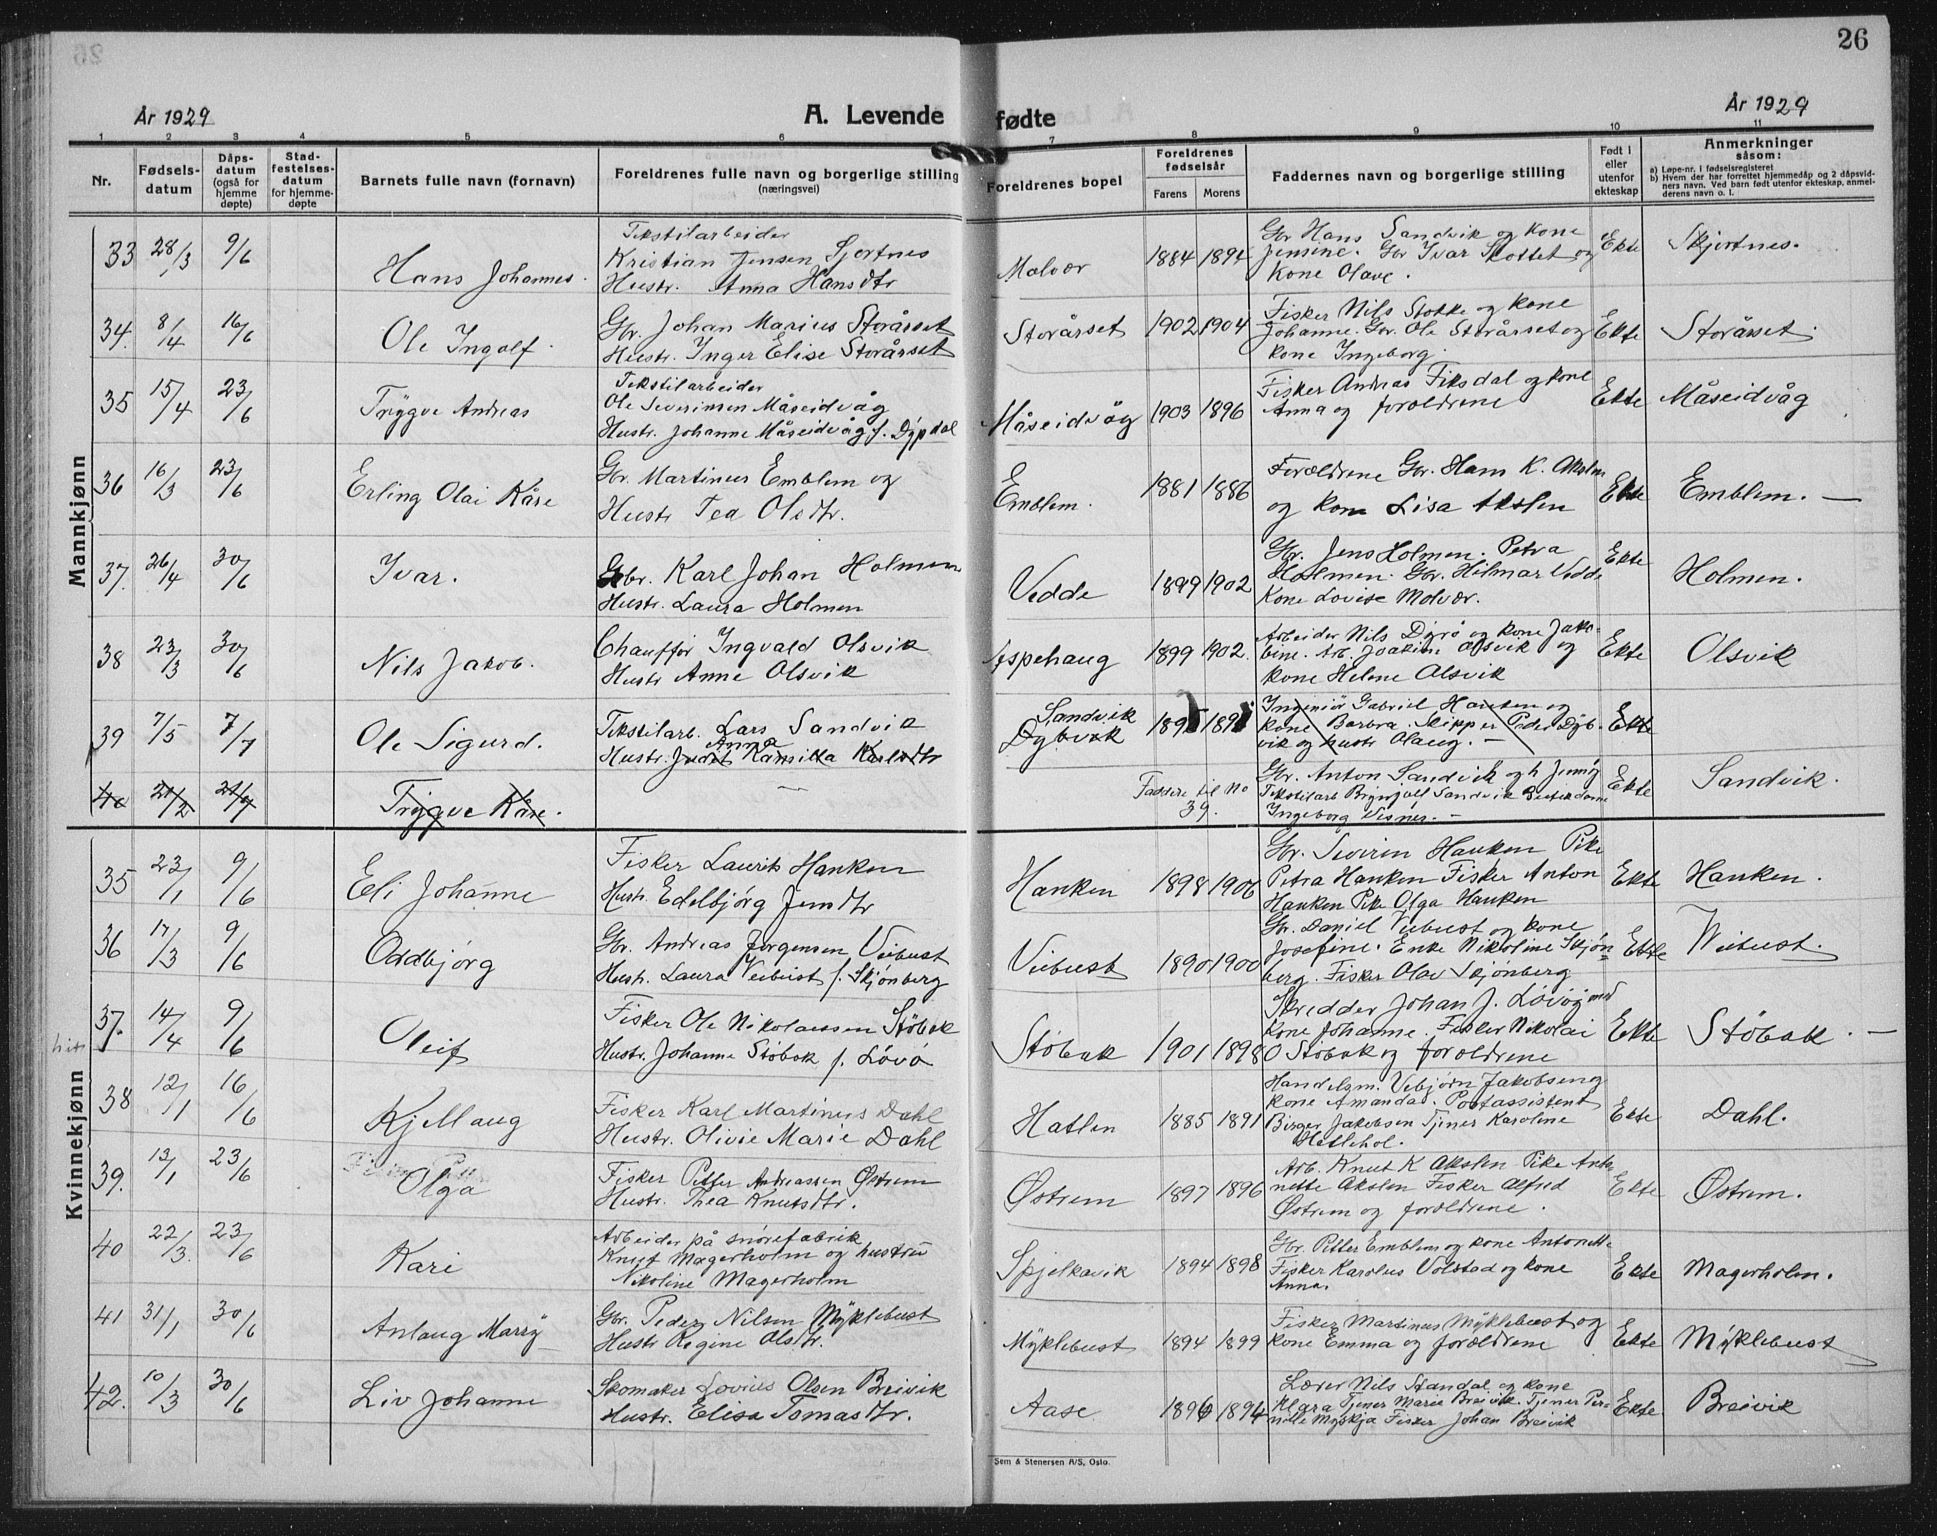 26
År 1929
A. Levende fødte
År 1929
1 2 3 4 5 6 7 8 9 10 11
Nr.
Fødsels-datum
Dåps-datum (også for hjemme døpte)
Stad-festelses-datum for hjemme-døpte
Barnets fulle navn (fornavn)
Foreldrenes fulle navn og borgerlige stilling (næringsvei)
Foreldrenes bopel
Foreldrenes fødselsår
Farens Morens
Faddernes navn og borgerlige stilling
Født i eller utenfor ekteskap
Anmerkninger såsom:
a) Løpe-nr. i fødselsregisteret
b) Hvem der har forrettet hjemmedåp og 2 dåpsvid-
ners navn. Ved barn født utenfor ekteskap, anmel-
derens navn o. l.
Mannkjønn
33 28/3 9/6 Hans Johannes.
Tekstilarbeider
Kristian Jensen Sjortnes
Hustr. Anna Hansdtr
Molvær 1884 1894
Gbr Hans Sandvik og kone
Jensine. Gbr Ivar Slottet og
kone Olave.
Ekte Skjortnes.
34. 8/4 16/6 Ole Ingolf.
Gbr. Johan Marius Storårset
Hustr. Inger Elise Storårset
Storårset 1902 1904
Fisker Nils Stokke og kone
Johanne. Gbr. Ole Storårset og
kone Ingeborg.
Ekte Storårset.
35 15/4 23/6 Trygve Andreas
Tekstilarbeider
Ole Severinsen Måseidvåg
Hustr. Johanne Måseidvåg f. Dypdal
Måseidvåg 1903 1896
Fisker Andreas Fiksdal og kone
Anna og foreldrene
Ekte Måseidvåg
36 16/3 23/6 Erling Olai Kåre
Gbr. Martinus Emblem og
Hustr Tea Olsdtr.
Emblem. 1881 1886
Foreldrene Gbr. Hans K. Akslen
og kone Lisa Akslen
Ekte Emblem. —
37. 26/4 30/6 Ivar.
Gbr. Karl Johan Holmen
Hustr. Laura Holmen
Vedde 1899 1902
Gbr. Jens Holmen. Petra
Holmen. Gbr. Hilmar Vedde
Kone Lovise Molvær.
Ekte Holmen.
38 23/3 30/6 Nils Jakob.
Chauffør Ingvald Olsvik
Hustr Anne Olsvik
Aspehaug 1899 1902.
Arbeider Nils Dyrø og kone Jako-
bine. Arb. Joakim Olsvik og
kone Helene Olsvik
Ekte Olsvik
39 7/5 7/7 Ole Sigurd.
Tekstilarb. Lars Sandvik
Hustr. Judit Anna Kamilla Karlsdtr
Sandvik
Dybvik
Ingeniør Gabriel Hansen og
kone Barbra. Skipper Peder Dyb-
vik og hustr Olaug. —
Ekte
40 21/2 21/7 Trygve Kåre. —
Faddere til No
39.
Gbr. Anton Sandvik og h. Jenny
Tekstilarb Brynjulf Sandvik
Ingeborg Visnes. —
Ekte Sandvik.
Kvinnekjønn
35 23/1 9/6 Eli Johanne
Fisker Laurits Hanken
Hustr. Edelbjørg Jensdtr
Hanken 1898 1906
Gbr. Severin Hanken Pike
Petra Hanken Fisker Anton
Hanken Pike Olga Hanken
Ekte Hanken.
36 17/3 9/6 Oddbjørg
Gbr. Andreas Jørgensen Veibust
Hustr. Laura Veibust f. Skjønberg
Veibust 1890 1900
Gbr. Daniel Veibust og kone
Josefine. Enke Nikoline Skjøn-
berg. Fisker Olav Skjønberg
Ekte Veibust.
37. 14/4 9/6 Oleif
Fisker Ole Nikolaisen Støbak
Hustr. Johanne Støbak f. Løvø
Støbak 1901 1898
Skredder Johan J. Løvøy med
kone Johanne. Fisker Nikolai
O Støbak og foreldrene
Ekte Støbak. —
38 12/1 16/6 Kjellaug
Fisker Karl Martinus Dahl
Hustr. Olivie Marie Dahl
Hatlen 1885 1891
Handelsm. Vebjørn Jakobsen og
kone Amanda. Postassistent
Birger Jakobsen Tjener Karoline
Hatlehol.
Ekte Dahl.
39. 13/1 23/6 Olga
Fisker Petter Andreassen Østrem
Hustr. Thea Knutsdtr.
Østrem 1897 1896
Arb. Knut K Akslen Pike Anto-
nette Akslen Fisker Alfred
Østrem og foreldrene.
Ekte Østrem.
40 22/3. 23/6 Kari
Arbeider på snørefabrik
Knut Magerholm og hustru
Nikoline Magerholm
Spjelkavik 1894 1898
Gbr. Petter Emblem og kone Antonette
Fisker Karolus Volstad og kone
Anna.
Ekte Magerholm.
41 31/1 30/6 Anlaug Marry
Gbr. Peder Nilsen Myklebust
Hustr Regine Olsdtr.
Myklebust 1894 1899
Fisker Martinus Myklebust og
kone Emma og foreldrene
Ekte Myklebust
42. 10/3 30/6 Liv Johanne
Skomaker Lovius Olsen Breivik
Hustr. Elisa Tomasdtr.
Aase 1896 1894
Lærer Nils Standal og kone
Klara Tjener Marie Breivik. Tjener Per-
nille Myskja Fisker Johan Breivik
Ekte Breivik
Sem & Stenersen A/S, Oslo.